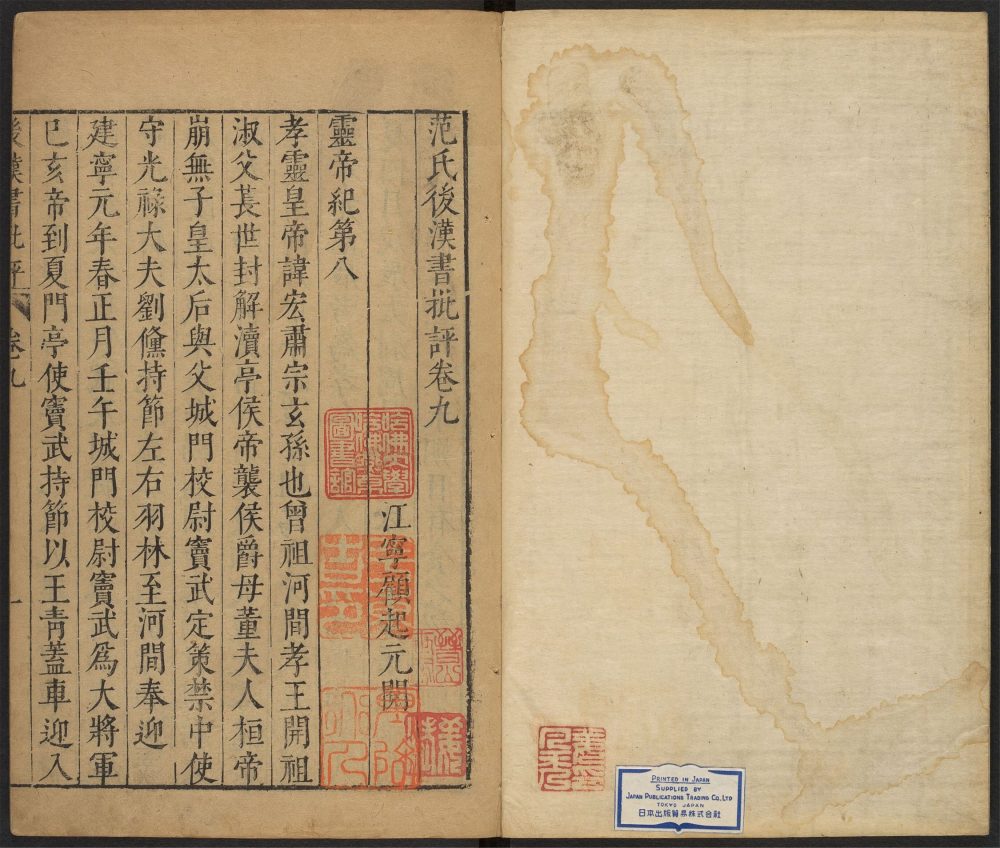 范氏後漢書批評卷九
江寧顧起元閱
靈帝紀第八
孝靈皇帝諱宏肅宗玄孫也曾祖河間孝王開祖
淑父萇世封解瀆亭侯帝襲侯爵母董夫人桓帝
崩無子皇太后與父城門校尉竇武定策禁中使
守光祿大夫劉儵持節左右羽林至河間奉迎
建寧元年春正月壬午城門校尉竇武爲大將軍
巳亥帝到夏門亭使竇武持節以王青蓋車迎入
後漢書批評 卷九 一
哈佛大學
哈佛燕京
圖書館
PRINTED IN JAPAN
SUPPLIED BY
JAPAN PUBLICATIONS TRADING CO., LTD
TOKYO JAPAN
日本出版貿易株式会社